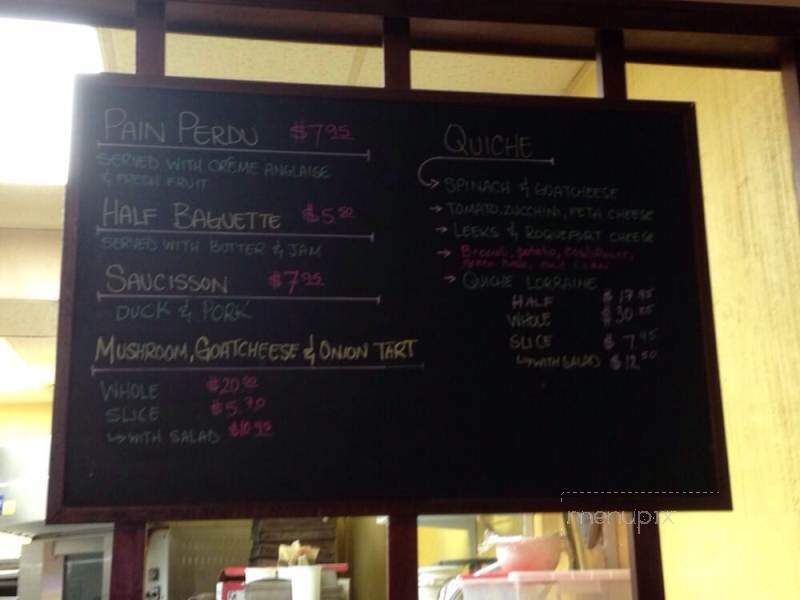 PAIN PERDU $7.95
SERVED WITH CRÈME ANGLAISE
& FRESH FRUIT
HALF BAGUETTE $5.50
SERVED WITH BUTTER & JAM
SAUCISSON $7.95
DUCK & PORK
MUSHROOM, GOATCHEESE & ONION TART
WHOLE $20.00
SLICE $5.70
WITH SALAD $10.95
QUICHE
SPINACH & GOATCHEESE
TOMATO, ZUCCHINI, FETA CHEESE
LEEKS & ROQUEFORT CHEESE
Broccoli, potato, cauliflower,
QUICHE LORRAINE
HALF $17.95
WHOLE $30.25
SLICE $7.95
WITH SALAD $12.50
menupix